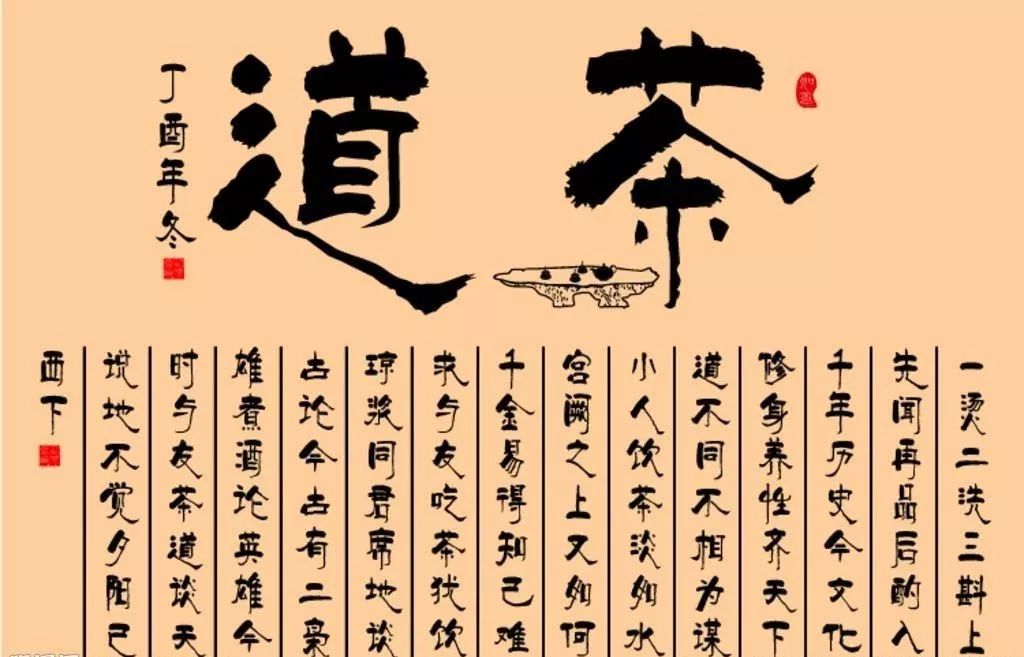 茶道
丁酉年冬
一烫二洗三斟上
先闻再品后酌入
千年历史今文化
修身养性齐天下
道不同不相为谋
小人饮茶淡如水
宫阙之上又如何
千金易得知己难
求与友吃茶犹饮
琼浆同君席地谈
古论今古有二枭
雄煮酒论英雄今
时与友茶道谈天
说地不觉夕阳已
西下